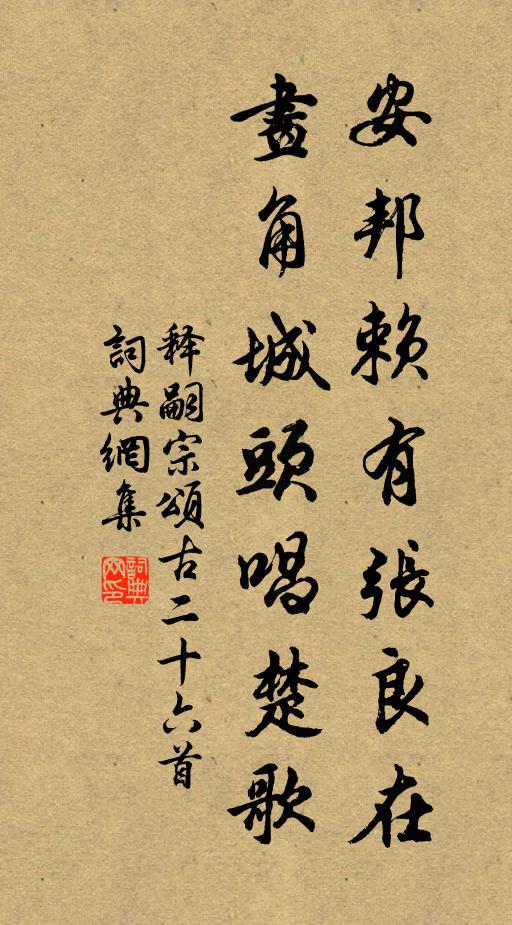 安邦賴有張良在
畫角城頭唱楚歌
释嗣宗頌古二十六首
詞典網集
詞典網印